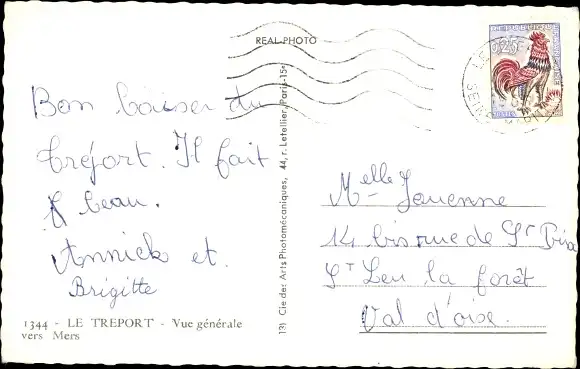 REAL-PHOTO
0,25
Bon baiser du
Tréport. Il fait
beau.
Annick et.
Brigitte
1344 - LE TREPORT - Vue générale
vers Mers
131 Cie des Arts Photomécaniques, 44, r. Letellier, Paris-15e
Melle Jouenne
14 bis rue de St Prix
St Leu la forêt
Val d'oise.